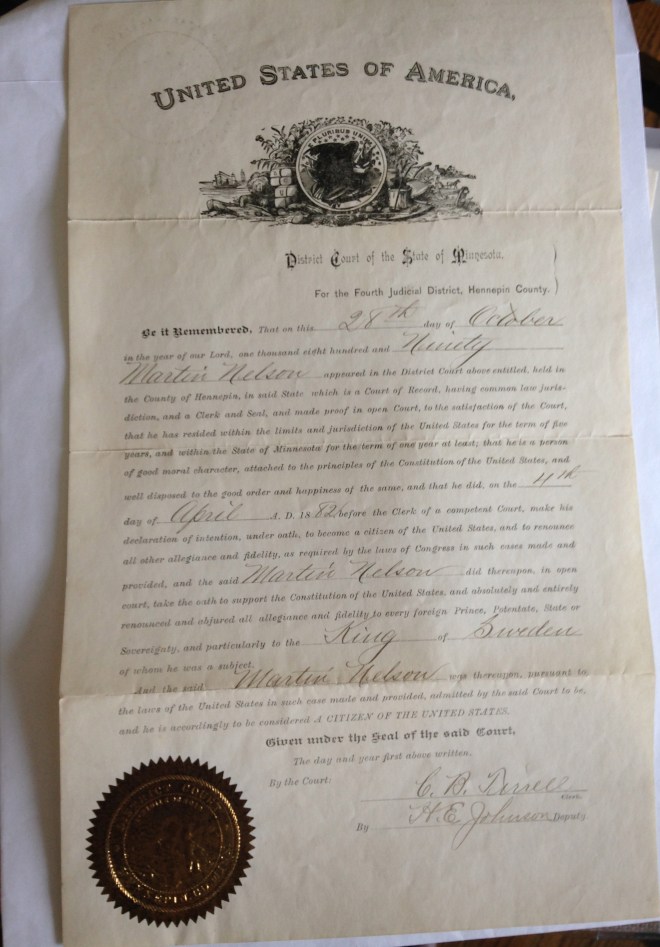 UNITED STATES OF AMERICA,
E PLURIBUS UNUM
District Court of the State of Minnesota.
For the Fourth Judicial District, Hennepin County.
Be it Remembered, That on this 28th day of October
in the year of our Lord, one thousand eight hundred and Ninety
Martin Nelson appeared in the District Court above entitled, held in
the County of Hennepin, in said State which is a Court of Record, having common law juris-
diction, and a Clerk and Seal, and made proof in open Court, to the satisfaction of the Court,
that he has resided within the limits and jurisdiction of the United States for the term of five
years, and within the State of Minnesota for the term of one year at least; that he is a person
of good moral character, attached to the principles of the Constitution of the United States, and
well disposed to the good order and happiness of the same, and that he did, on the 4th
day of April A. D. 1882, before the Clerk of a competent Court, make his
declaration of intention, under oath, to become a citizen of the United States, and to renounce
all other allegiance and fidelity, as required by the laws of Congress in such cases made and
provided, and the said Martin Nelson did thereupon, in open
court, take the oath to support the Constitution of the United States, and absolutely and entirely
renounced and abjured all allegiance and fidelity to every foreign Prince, Potentate, State or
Sovereignty, and particularly to the King of Sweden
of whom he was a subject.
And the said Martin Nelson was thereupon, pursuant to
the laws of the United States in such case made and provided, admitted by the said Court to be,
and he is accordingly to be considered A CITIZEN OF THE UNITED STATES.
Given under the Seal of the said Court,
The day and year first above written.
By the Court:
C. B. Tirrell
Clerk.
By H. E. Johnson Deputy